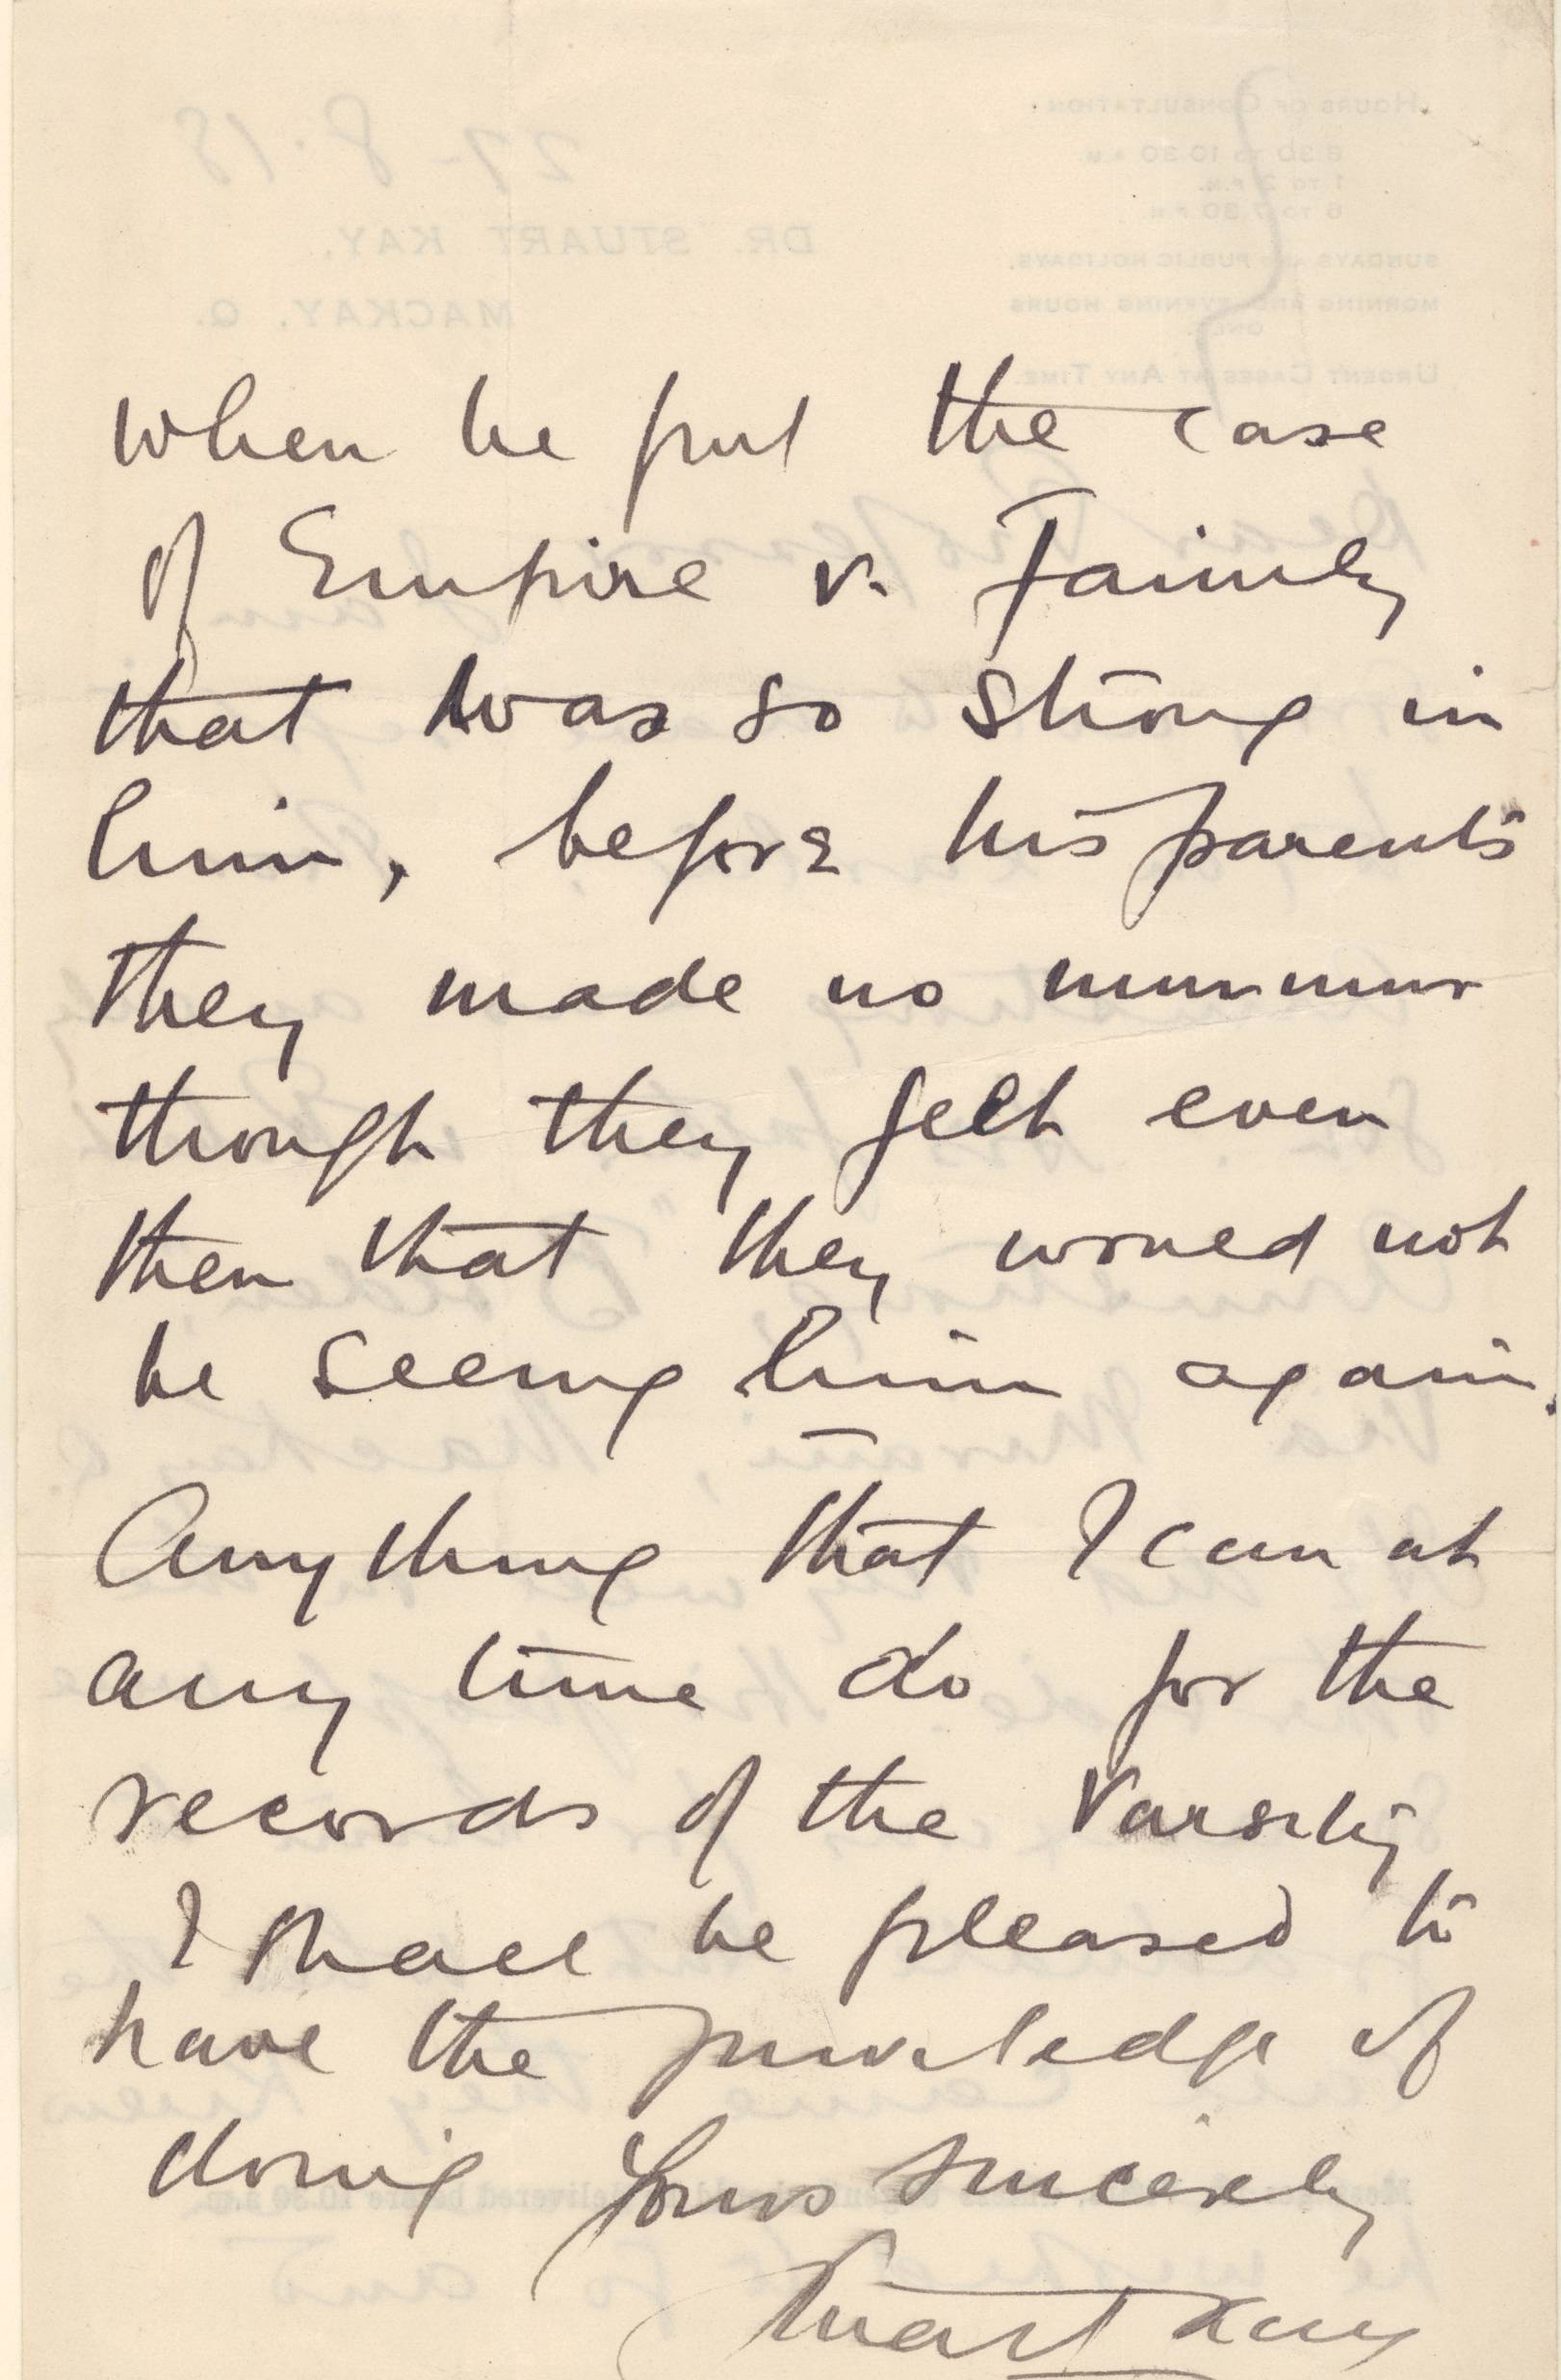 when he put the case
of Empire v. Family
that was so strong in
him, before his parents
they made no murmur
though they felt even
then that they would not
be seeing him again.
Anything that I can at
any time do for the
records of the Varsity
I shall be pleased to
have the priveledge of
doing Yours sincerely
Stuart Kay